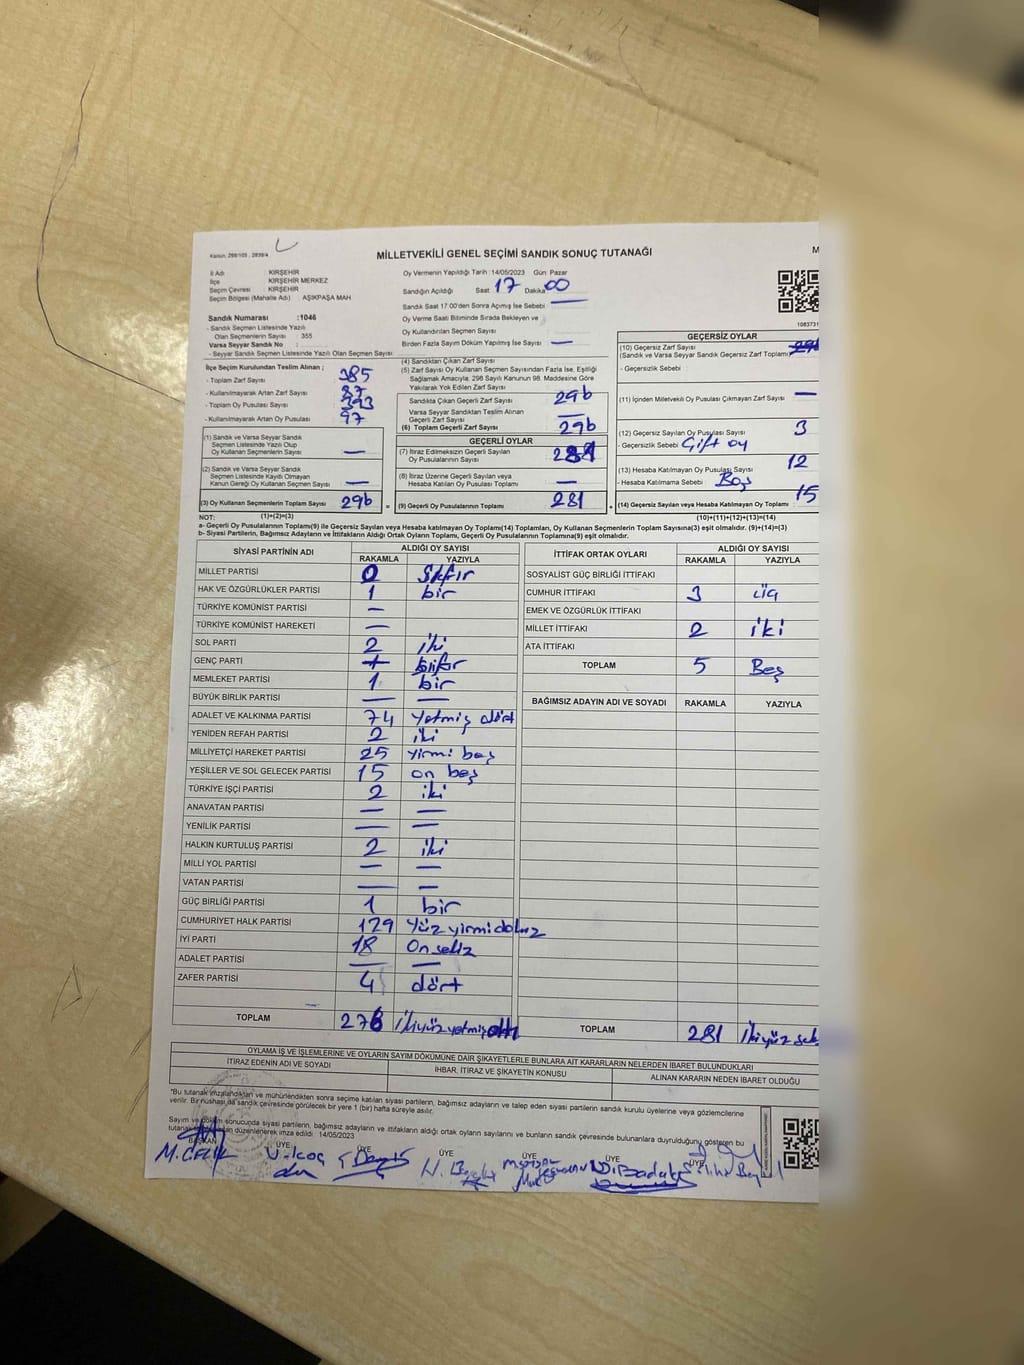 Kanun, 298/105 , 2839/4
MİLLETVEKİLİ GENEL SEÇİMİ SANDIK SONUÇ TUTANAĞI
M
İl Adı KIRŞEHİR
İlçe KIRŞEHİR MERKEZ
Seçim Çevresi : KIRŞEHİR
Seçim Bölgesi (Mahalle Adı) : AŞIKPAŞA MAH
Sandık Numarası :1046
- Sandık Seçmen Listesinde Yazılı
Olan Seçmenlerin Sayısı : 355
Varsa Seyyar Sandık No :
- Seyyar Sandık Seçmen Listesinde Yazılı Olan Seçmen Sayısı
Oy Vermenin Yapıldığı Tarih :14/05/2023 Gün: Pazar
Sandığın Açıldığı Saat : 17 Dakika 00
Sandık Saat 17:00'den Sonra Açılmış İse Sebebi : —
Oy Verme Saati Bitiminde Sırada Bekleyen ve
Oy Kullandırılan Seçmen Sayısı
Birden Fazla Sayım Döküm Yapılmış İse Sayısı : —
1083731
İlçe Seçim Kurulundan Teslim Alınan ;
- Toplam Zarf Sayısı : 385
- Kullanılmayarak Artan Zarf Sayısı :
- Toplam Oy Pusulası Sayısı : 393
- Kullanılmayarak Artan Oy Pusulası : 97
(1) Sandık ve Varsa Seyyar Sandık
Seçmen Listesinde Yazılı Olup
Oy Kullanan Seçmenlerin Sayısı —
(2) Sandık ve Varsa Seyyar Sandık
Seçmen Listesinde Kayıtlı Olmayan
Kanun Gereği Oy Kullanan Seçmen Sayısı —
(3) Oy Kullanan Seçmenlerin Toplam Sayısı 296
(1)+(2)=(3)
(4) Sandıktan Çıkan Zarf Sayısı
(5) Zarf Sayısı Oy Kullanan Seçmen Sayısından Fazla İse, Eşitliği
Sağlamak Amacıyla, 298 Sayılı Kanunun 98. Maddesine Göre
Yakılarak Yok Edilen Zarf Sayısı
Sandıkta Çıkan Geçerli Zarf Sayısı 296
Varsa Seyyar Sandıktan Teslim Alınan
Geçerli Zarf Sayısı —
(6) Toplam Geçerli Zarf Sayısı 296
GEÇERLİ OYLAR
(7) İtiraz Edilmeksizin Geçerli Sayılan
Oy Pusulalarının Sayısı 281
(8) İtiraz Üzerine Geçerli Sayılan veya
Hesaba Katılan Oy Pusulası Toplamı —
= (9) Geçerli Oy Pusulalarının Toplamı 281
GEÇERSİZ OYLAR
(10) Geçersiz Zarf Sayısı
(Sandık ve Varsa Seyyar Sandık Geçersiz Zarf Toplamı)
- Geçersizlik Sebebi :
(11) İçinden Milletvekili Oy Pusulası Çıkmayan Zarf Sayısı —
(12) Geçersiz Sayılan Oy Pusulası Sayısı 3
- Geçersizlik Sebebi : Çift oy
(13) Hesaba Katılmayan Oy Pusulası Sayısı 12
- Hesaba Katılmama Sebebi : Boş
+ (14) Geçersiz Sayılan veya Hesaba Katılmayan Oy Toplamı 15
(10)+(11)+(12)+(13)=(14)
NOT:
a- Geçerli Oy Pusulalarının Toplamı(9) ile Geçersiz Sayılan veya Hesaba katılmayan Oy Toplamı(14) Toplamları, Oy Kullanan Seçmenlerin Toplam Sayısına(3) eşit olmalıdır. (9)+(14)=(3)
b- Siyasi Partilerin, Bağımsız Adayların ve İttifakların Aldığı Ortak Oyların Toplamı, Geçerli Oy Pusulalarının Toplamına(9) eşit olmalıdır.
SİYASİ PARTİNİN ADI ALDIĞI OY SAYISI
RAKAMLA YAZIYLA
MİLLET PARTİSİ 0 Sıfır
HAK VE ÖZGÜRLÜKLER PARTİSİ 1 bir
TÜRKİYE KOMÜNİST PARTİSİ —
TÜRKİYE KOMÜNİST HAREKETİ —
SOL PARTİ 2 iki
GENÇ PARTİ
MEMLEKET PARTİSİ 1 bir
BÜYÜK BİRLİK PARTİSİ — —
ADALET VE KALKINMA PARTİSİ 74 Yetmiş dört
YENİDEN REFAH PARTİSİ 2 iki
MİLLİYETÇİ HAREKET PARTİSİ 25 yirmi beş
YEŞİLLER VE SOL GELECEK PARTİSİ 15 on beş
TÜRKİYE İŞÇİ PARTİSİ 2 iki
ANAVATAN PARTİSİ — —
YENİLİK PARTİSİ — —
HALKIN KURTULUŞ PARTİSİ 2 iki
MİLLİ YOL PARTİSİ — —
VATAN PARTİSİ — —
GÜÇ BİRLİĞİ PARTİSİ 1 bir
CUMHURİYET HALK PARTİSİ 129 Yüz yirmi dokuz
İYİ PARTİ 18 On sekiz
ADALET PARTİSİ — —
ZAFER PARTİSİ 4 dört
TOPLAM 276 ikiyüz yetmiş altı
İTTİFAK ORTAK OYLARI ALDIĞI OY SAYISI
RAKAMLA YAZIYLA
SOSYALİST GÜÇ BİRLİĞİ İTTİFAKI
CUMHUR İTTİFAKI 3 üç
EMEK VE ÖZGÜRLÜK İTTİFAKI
MİLLET İTTİFAKI 2 iki
ATA İTTİFAKI
TOPLAM 5 Beş
BAĞIMSIZ ADAYIN ADI VE SOYADI RAKAMLA YAZIYLA
TOPLAM 281 İkiyüz sek
OYLAMA İŞ VE İŞLEMLERİNE VE OYLARIN SAYIM DÖKÜMÜNE DAİR ŞİKAYETLERLE BUNLARA AİT KARARLARIN NELERDEN İBARET BULUNDUKLARI
İTİRAZ EDENİN ADI VE SOYADI İHBAR, İTİRAZ VE ŞİKAYETİN KONUSU ALINAN KARARIN NEDEN İBARET OLDUĞU
"Bu tutanak imzalandıktan ve mühürlendikten sonra seçime katılan siyasi partilerin, bağımsız adayların ve talep eden siyasi partilerin sandık kurulu üyelerine veya gözlemcilerine
verilir. Bir nüshası da sandık çevresinde görülecek bir yere 1 (bir) hafta süreyle asılır.
Sayım ve döküm sonucunda siyasi partilerin, bağımsız adayların ve ittifakların aldığı ortak oyların sayılarını ve bunların sandık çevresinde bulunanlara duyrulduğunu gösteren bu
tutanak düzenlenerek imza edildi. 14/05/2023
BAŞKAN ÜYE ÜYE ÜYE ÜYE ÜYE ÜYE
M. ÇELİK